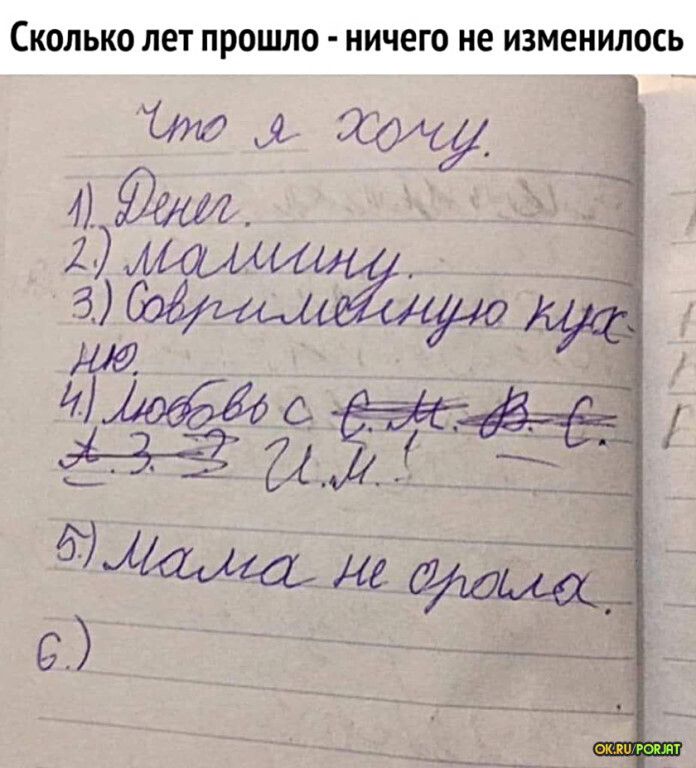 Сколько лет прошло - ничего не изменилось
Что я хочу.
1) Денег.
2.) Машину.
3.) Совримженную кух-
ню.
4.) Любовь с С. М. В. С.
А. З. И.М.!
5.) Мама не орала.
6.)
OK.RU/PORJAT